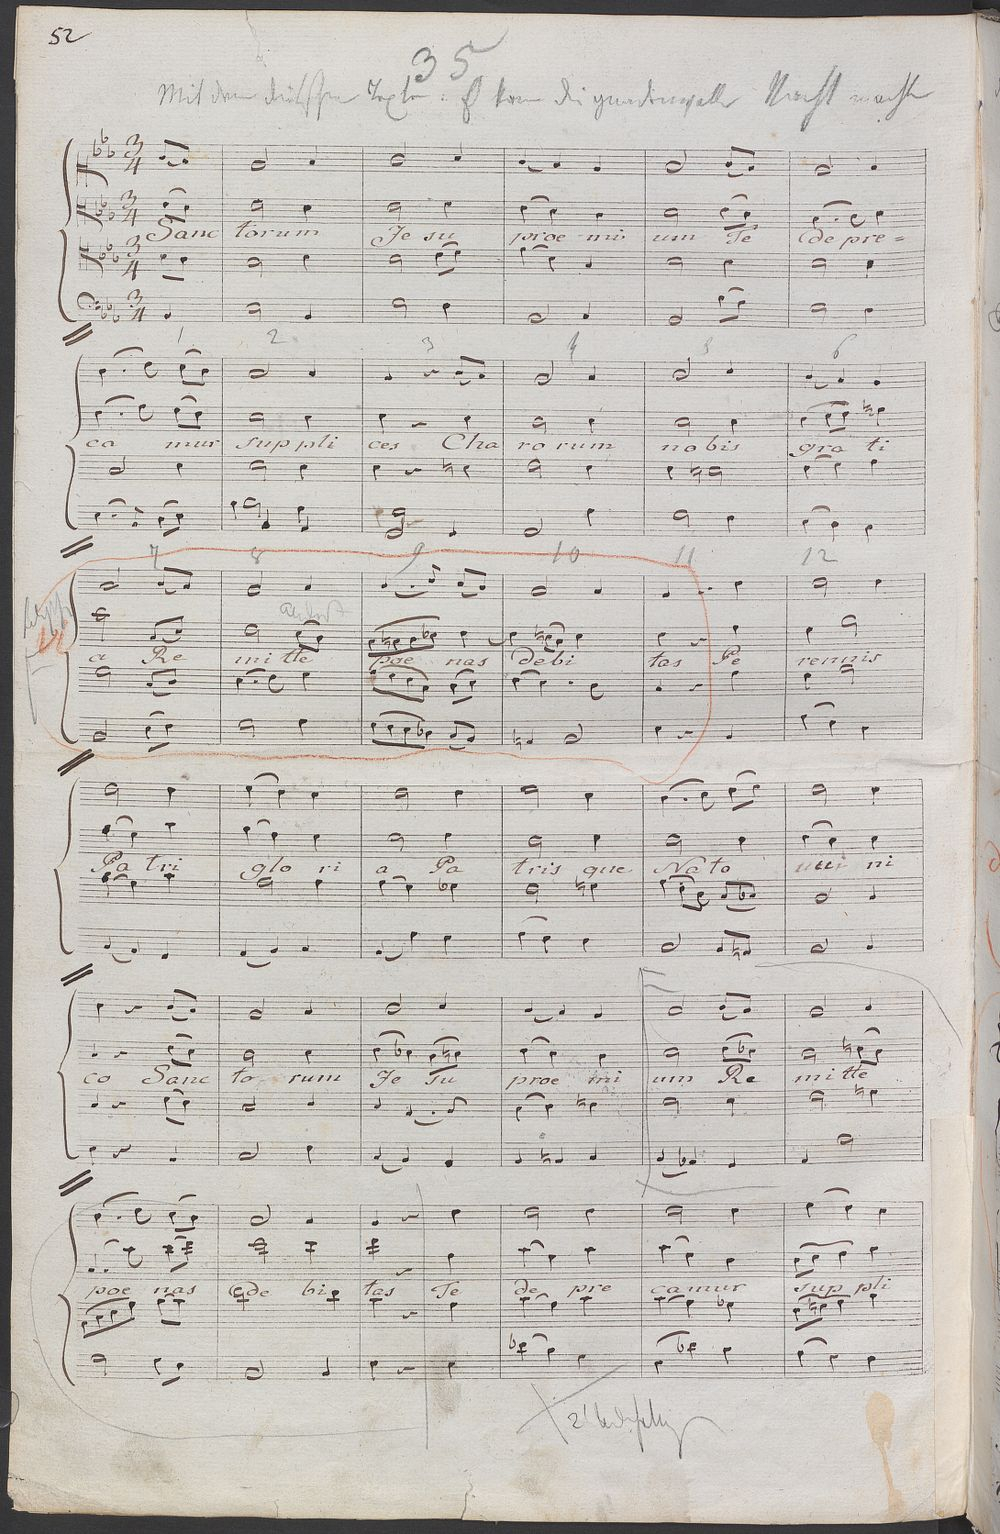 52
35
Mit dem deutschen Text: O komm die gnadenvolle Nacht
3 4
3 4
Sanc torum Je su proe mi um Te de pre=
3 4
3 4
1 2 3 4 5 6
ca mur suppli ces Cha ro rum no bis gra ti
7 8 9 10 11 12
a Re mi tte poe nas debi tas Pe rennis
Pa tri glo ri a Pa tris que Na to uni ni
co Sanc to rum Je su proe mi um Re mi tte
poe nas de bi tas Te de pre ca mur sup pli